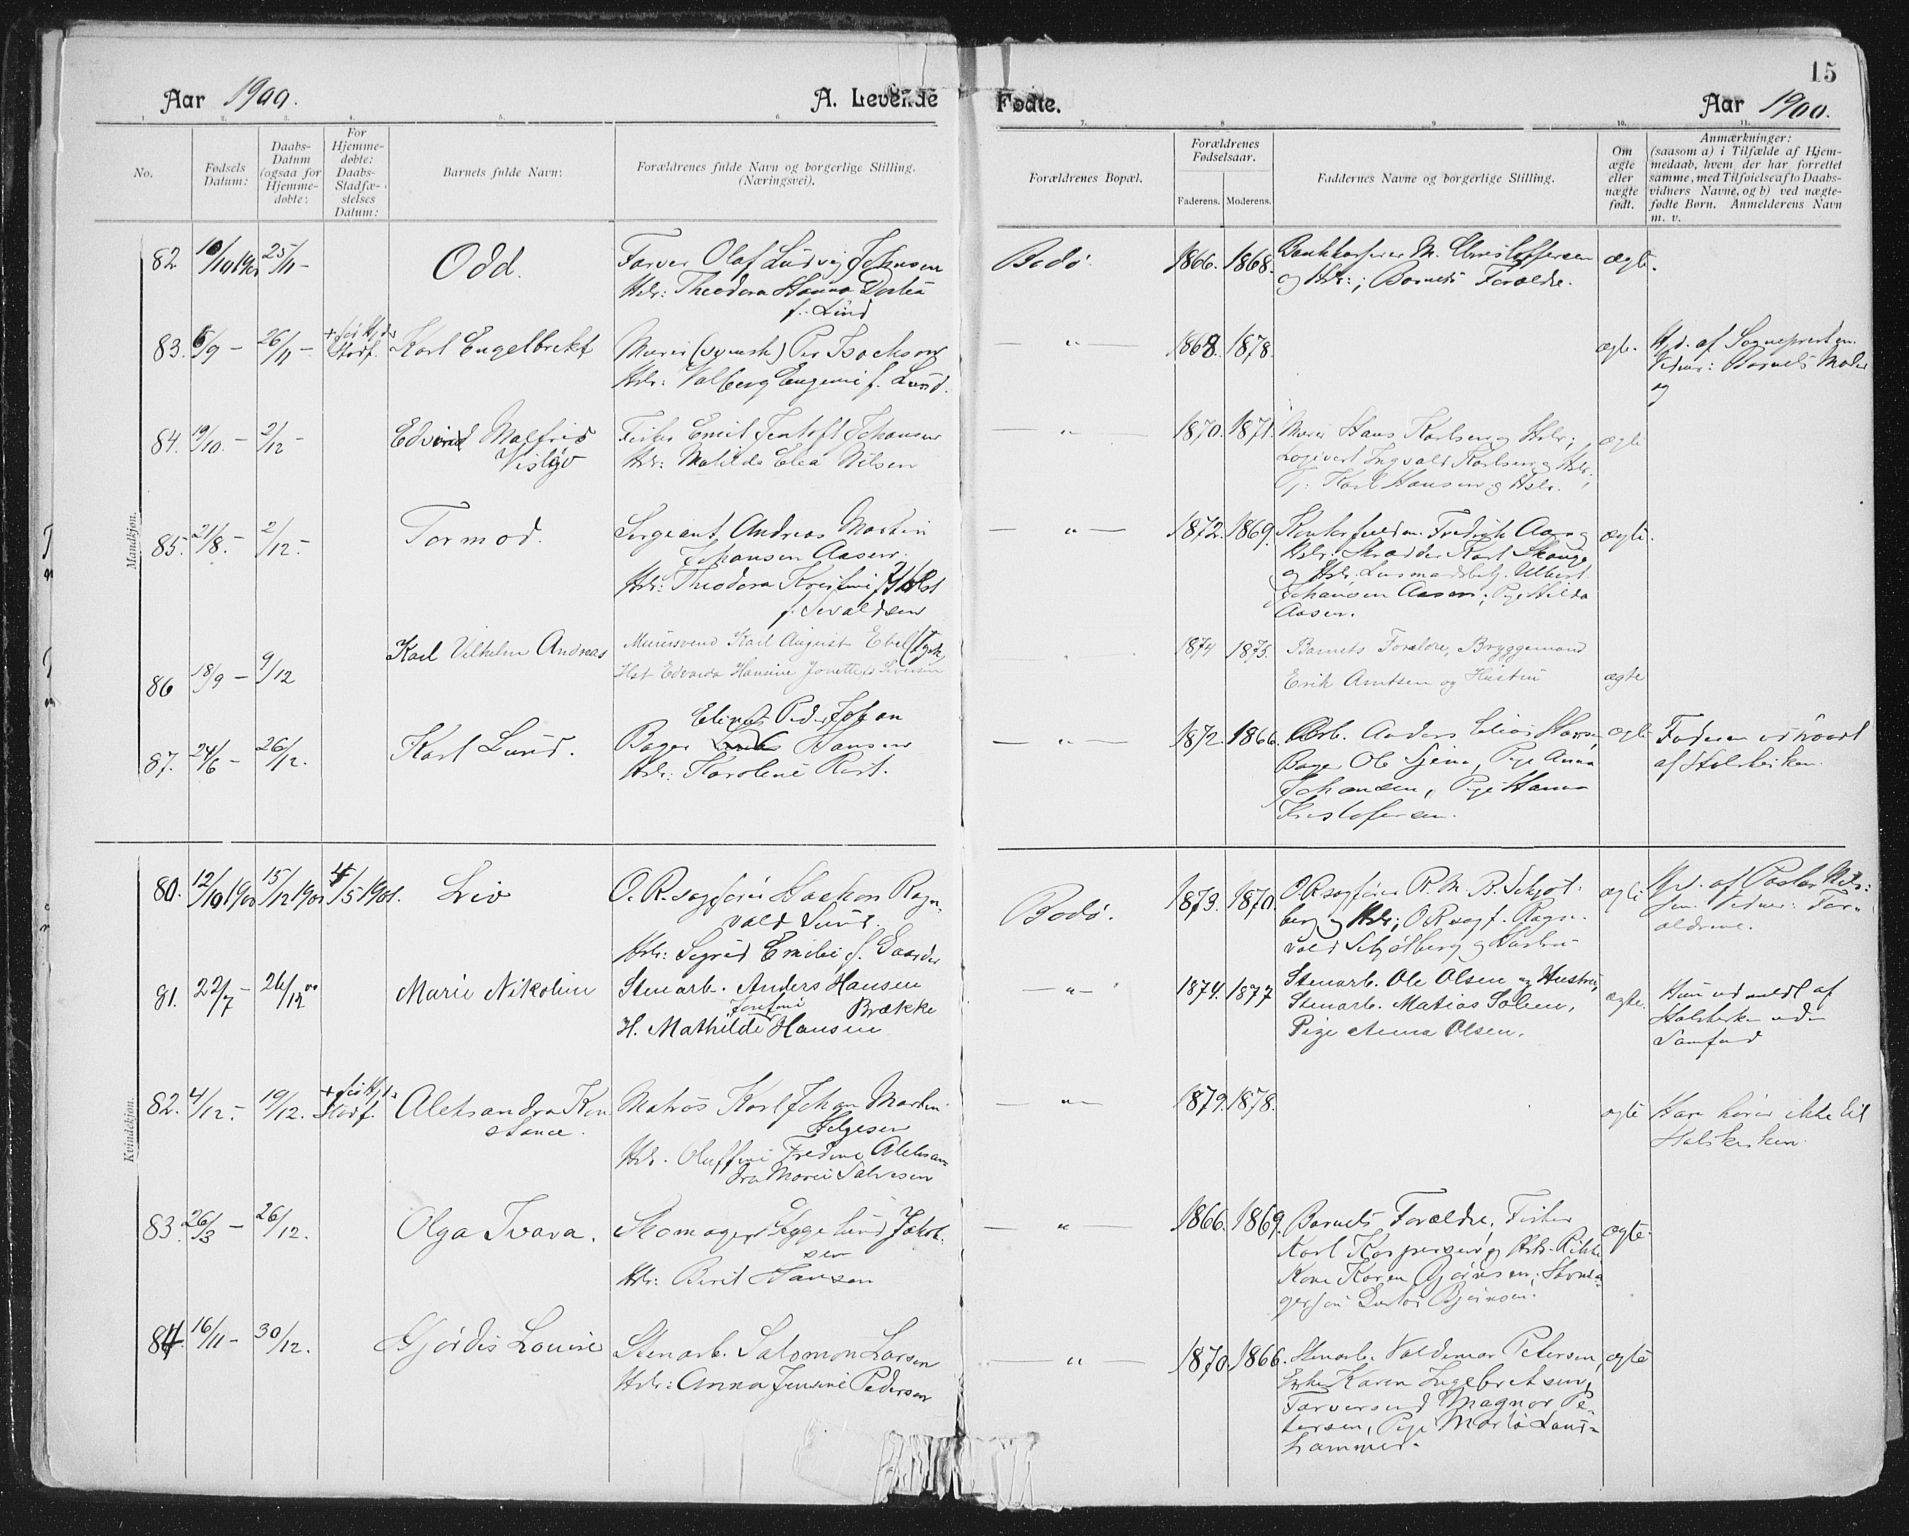 15
Aar 1900. A. Levende Fødte. Aar 1900.
1. 2. 3. 4. 5. 6. 7. 8. 9. 10. 11.
No.
Fødsels Datum:
Daabs-
Datum
(ogsaa for
Hjemme-
døbte:
For
Hjemme-
døbte:
Daabs-
Stadfæ-
stelses
Datum:
Barnets fulde Navn:
Forældrenes fulde Navn og borgerlige Stilling.
(Næringsvei).
Forældrenes Bopæl.
Forældrenes
Fødselsaar.
Faderens. Moderens.
Faddernes Navne og borgerlige Stilling.
Om
ægte
eller
nægte
født.
Anmærkninger:
(saasom a) i Tilfælde af Hjem-
medaab, hvem der har forrettet
samme, med Tilføielse af to Daabs-
vidners Navne, og b) ved nægte-
fødte Børn. Anmelderens Navn
m. v.
Mandkjøn.
82 10/10 1900 25/11 - Odd. Farver Olaf Ludvig Johansen
Hstr: Theodora Hanna Dortea
f. Lund
Bodø. 1866. 1868. Bankkasserer M. Christoffersen
og Hstr:; Barnets Forældre.
ægte.
83. 6/9 - 26/11 - + før Hjds
Stadf. Karl Engelbrekt Murer (svensk) Per Isackson
Hstr: Valborg Eugenie f. Lund.
— " — 1868. 1878. ægte. Hjd. af Sognepresten.
Vidner: Barnets Moder
og
84. 19/10 - 2/12 - Edvind Malfrid
Visløv
Fisker Emil Jentoft Johansen
Hstr: Matilde Elea Nilsen
— " — 1870. 1871. Murer Hans Karlsen og Hstr;
Logivert Ingvald Karlsen og Hstr.;
Tj: Karl Hansen og Hstr.
ægte
85. 21/8. - 2/12. - Tormod. Sergeant Andreas Martin
Johansen Aasen.
Hstr: Theodora Kristine Holst
f. Sivaldsen
— " — 1872. 1869. Fredrik Aars og
Hstr. Skrædder Karl Skauge
og Hstr. Lensmandsbetj. Albert
Johansen Aasen; Pige Hilda
Aasen.
ægte.
86 18/9 - 9/12 Karl Vilhelm Andreas Murersvend Karl August Ebel (tysk)
Hst Edvarda Hansine Jonette f. Siversen
1874 1875. Barnets Forældre, Bryggemand
Erik Arntsen og Hustru
ægte
87. 24/6 - 26/12. Karl Lund. Bager Elines Peder Johan Hansen
Hstr: Karoline Rist.
— " — 1872. 1866. Arb. Anders Elias Hansen,
Bager Ole Tjeme, Pige Anna
Johansen, Pige Hanna
Kristofersen.
ægte Faderen udtraadt
af Statskirken.
Kvindekjøn.
80. 12/10 1900 15/12 1900 4/5 1901. Liv O. R. sagfører Haakon Ragn-
vald Sund.
Hstr: Sigrid Emilie f. Gaarder
Bodø. 1873. 1870. O.R.sagfører R. M. B. Schjøl-
berg og Hstr; O.R.sagf. Ragn-
vald Schjølberg og Hustru
ægte Hjd. af Pastor Niel-
sen. Vidner: For-
ældrene.
81. 22/7 - 26/12 00 Marie Nikoline Stenarb. Anders Hansen
Brække
H. Mathilde Josefine Hansen
— " — 1874. 1877 Stenarb. Ole Olsen og Hustru,
Stenarb. Matias Solem,
Pige Anna Olsen.
ægte. Hun udmeldt af
Statskirken uden
Samfund
82. 4/12. - 19/12. + før Hjds
Stadf. Aleksandra Kon
stance. Matros Karl Johan Martin
Helgesen
Hstr. Oluffine Fredine Aleksan-
dra Marie Salvesen
— " — 1879. 1878. ægte Han hører ikke til
Statskirken.
83. 26/3 - 26/12. Olga Tvara. Skomager Hygge Lund Jakob-
sen
Hstr: Berit Hansen
— " — 1866. 1869. Barnets Forældre, Fisker
Karl Kaspersen og Hstr. Rikke
Kone Karen Bjørnsen;
Bjørnsen.
ægte.
84. 16/11 - 30/12. Hjørdis Louise Stenarb. Salomon Larsen
Hstr: Anna Jensine Pedersen
— " — 1870. 1866. Stenarb. Valdemar Petersen,
Enke Karen Ingebretsen,
Farversvend Magnor Pe-
tersen, Pige Marta Land-
hammer.
ægte